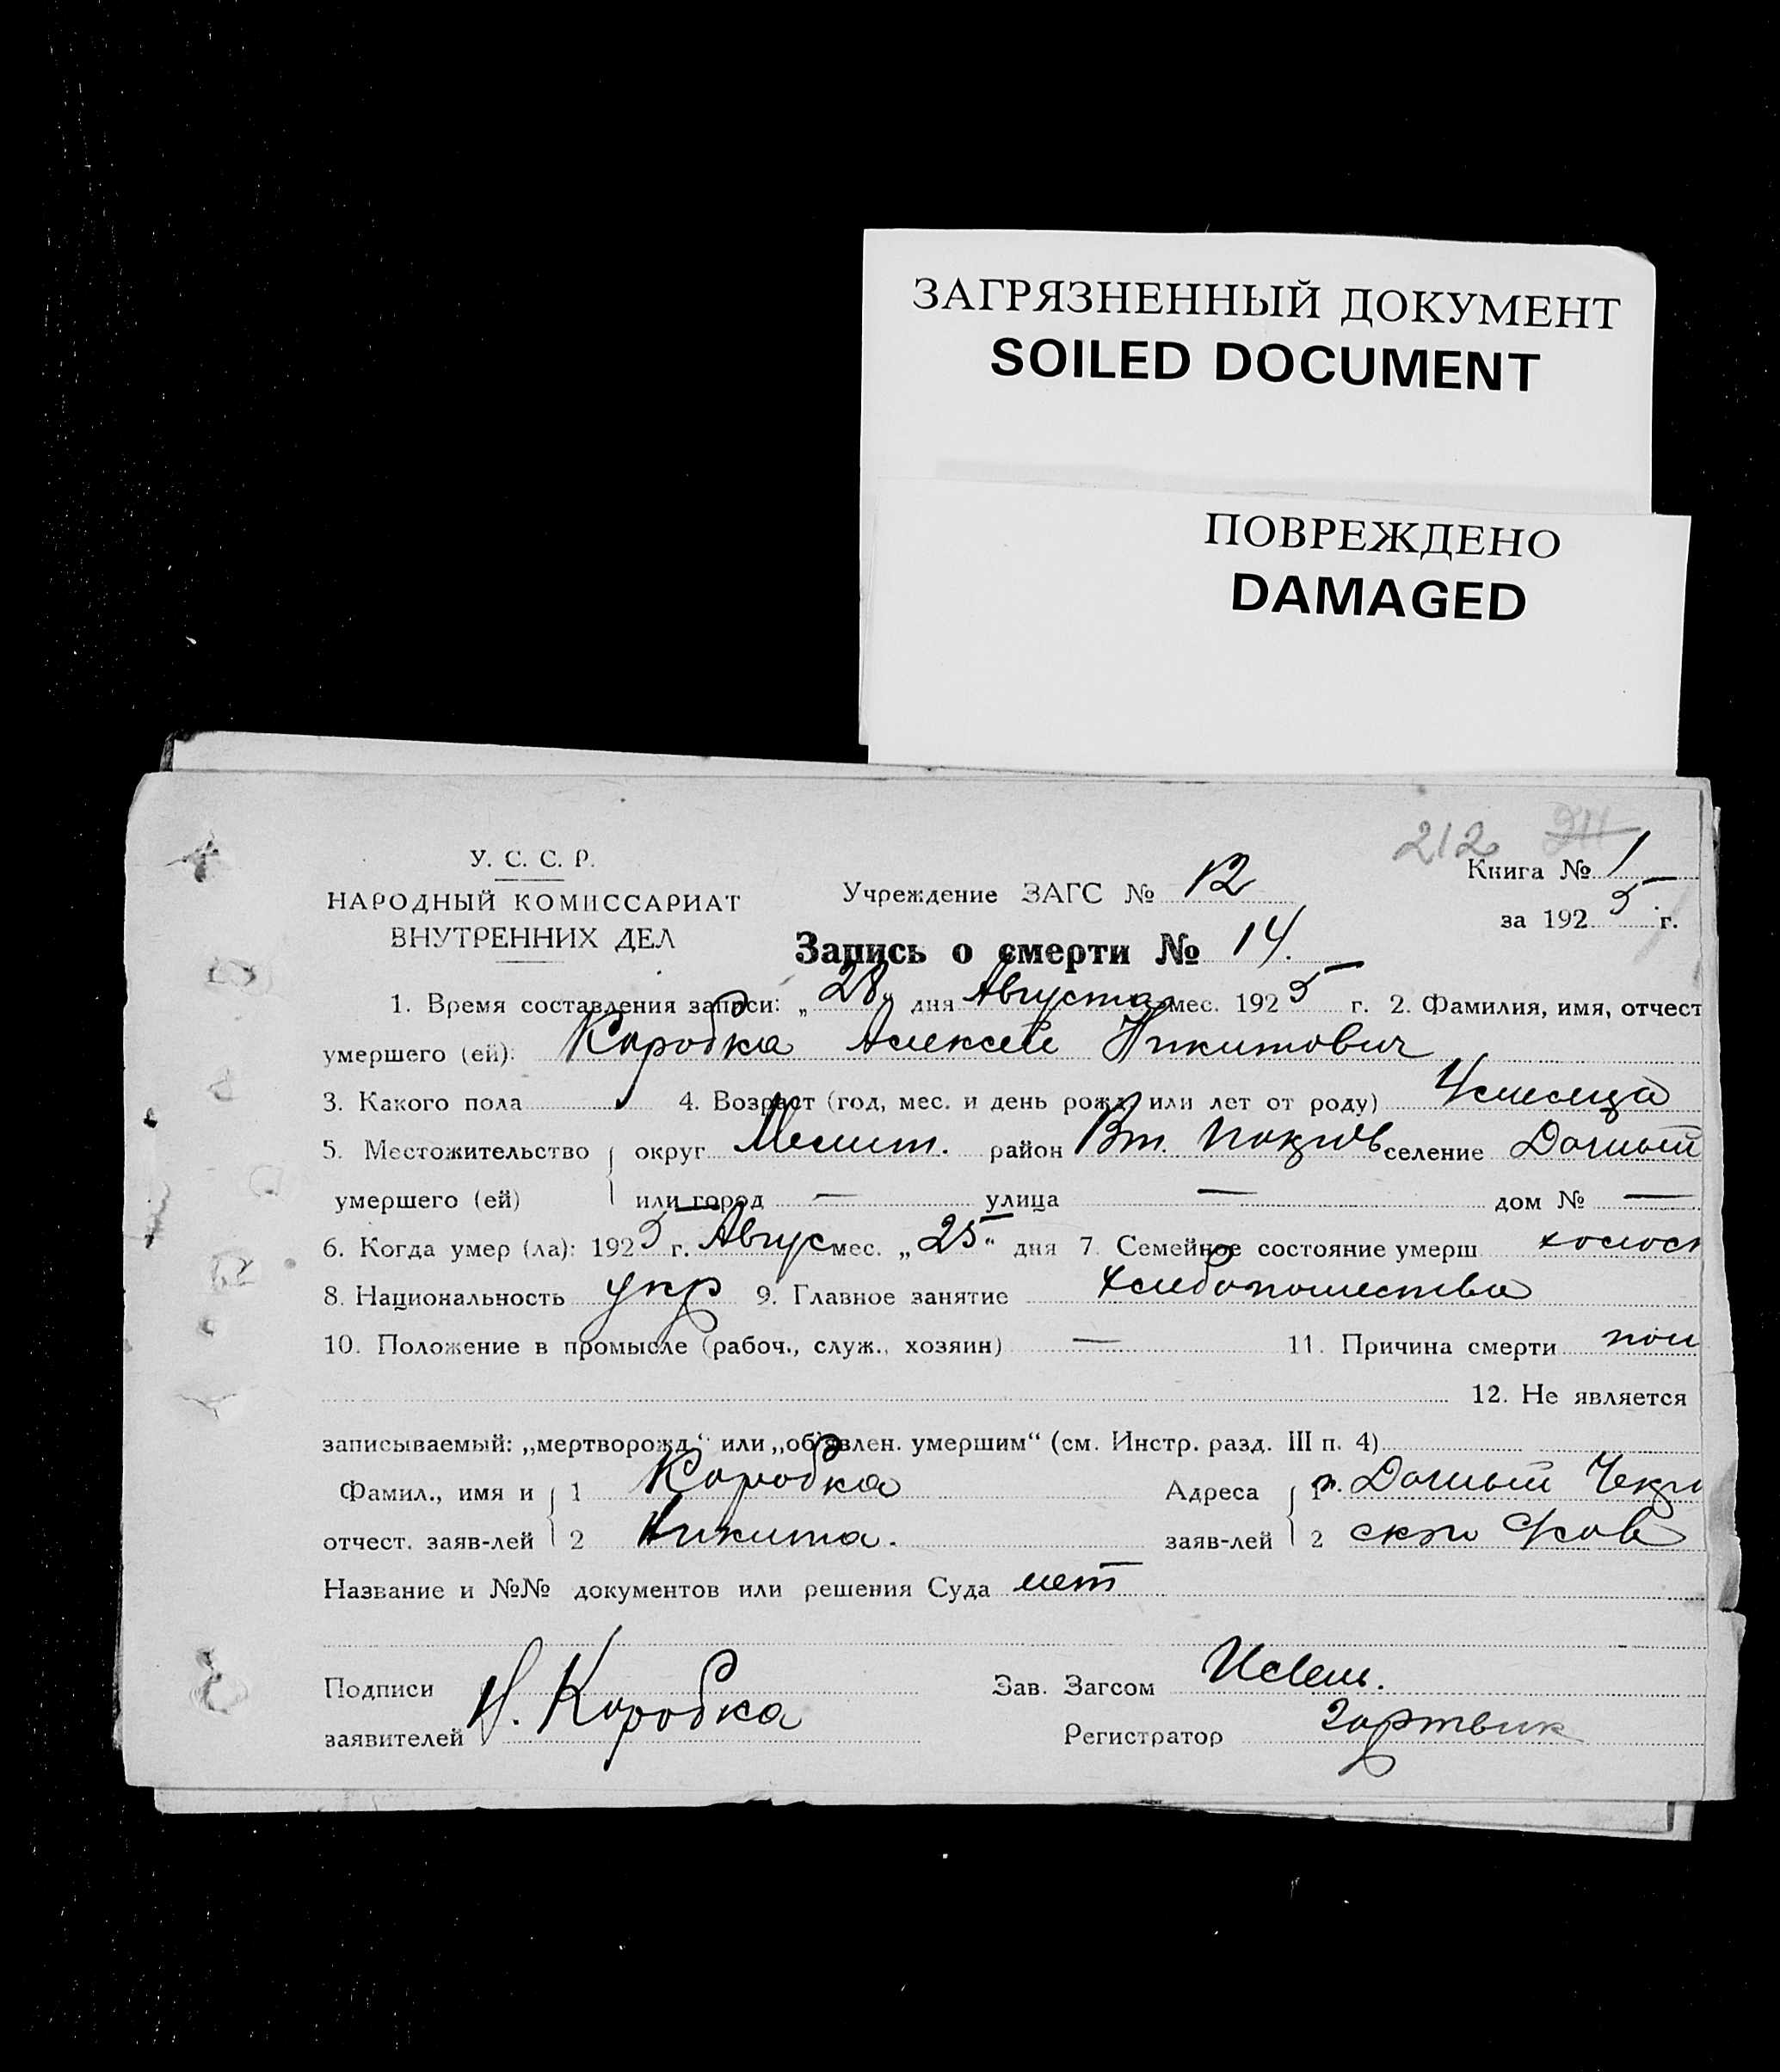 ЗАГРЯЗНЕННЫЙ ДОКУМЕНТ
SOILED DOCUMENT
ПОВРЕЖДЕНО
DAMAGED
212 211
У. С. С. Р.
НАРОДНЫЙ КОМИССАРИАТ
ВНУТРЕННИХ ДЕЛ
Учреждение ЗАГС № 12
Книга № 1
за 1925 г.
Запись о смерти № 14.
1. Время составления записи: „28“ дня Августа мес. 1925 г. 2. Фамилия, имя, отчест
умершего (ей): Коробка Алексей Никитович
3. Какого пола 4. Возраст (год, мес. и день рожд. или лет от роду) 4 месяца
5. Местожительство округ Мелит. район Вт. селение Дачный
умершего (ей) или город — улица — дом № —
6. Когда умер (ла): 1925 г. Авгус мес. „25“ дня 7. Семейное состояние умерш холост
8. Национальность укр 9. Главное занятие хлебопашества
10. Положение в промысле (рабоч., служ., хозяин) — 11. Причина смерти
12. Не является
записываемый: „мертворожд.“ или „об'явлен. умершим“ (см. Инстр. разд. III п. 4)
Фамил., имя и 1 Коробка Адреса 1 Дачный
отчест. заяв-лей 2 Никита. заяв-лей 2
Название и №№ документов или решения Суда нет
Подписи Н. Коробка Зав. Загсом
заявителей Регистратор